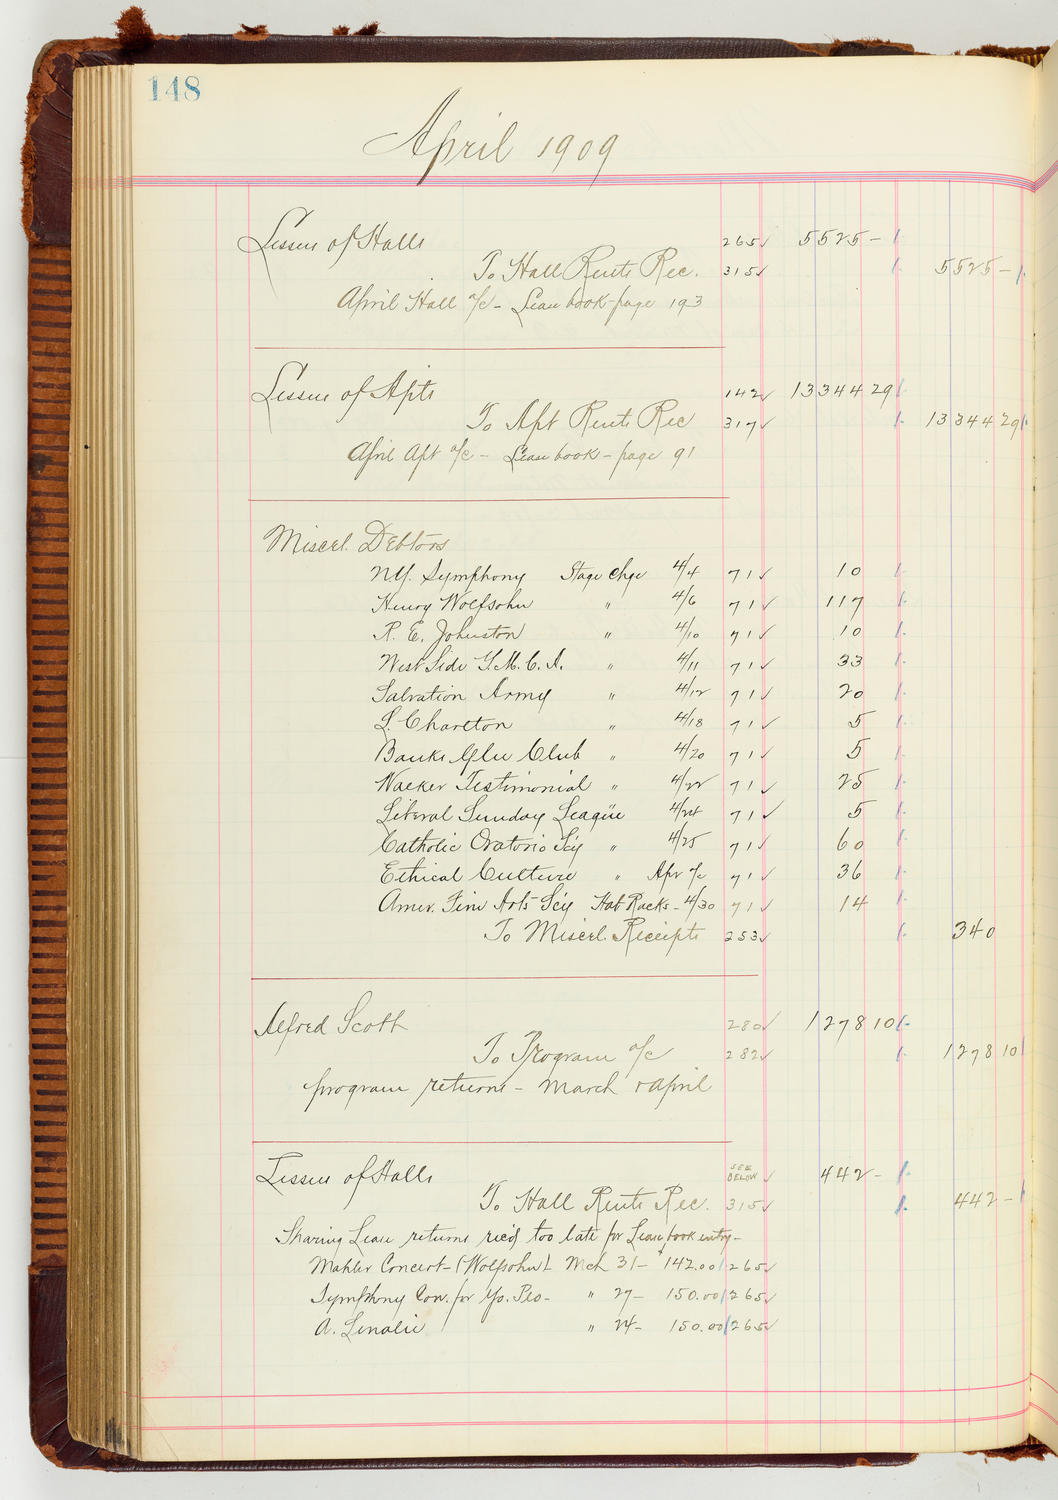 148
April 1909
Lessee of Halls 265✓ 5525 –
To Hall Rents Rec. 315✓ 5525 –
April Hall a/c – Lease book – page 193
Lessee of Apts 142✓ 13344 29
To Apt Rents Rec 317✓ 13344 29
April Apt a/c – Lease book – page 91
Miscel. Debtors
N.Y. Symphony Stage Chge 4/4 71✓ 10
Henry Wolfsohn " 4/6 71✓ 117
R. E. Johnston " 4/10 71✓ 10
West Side Y.M.C.A. " 4/11 71✓ 33
Salvation Army " 4/12 71✓ 20
L. Charlton " 4/18 71✓ 5
Banks Glee Club " 4/20 71✓ 5
Walker Testimonial " 4/22 71✓ 25
Liberal Sunday League " 4/24 71✓ 5
Catholic Oratorio Scy " 4/25 71✓ 60
Ethical Culture " Apr a/c 71✓ 36
Amer. Fine Arts Scy Hat Racks – 4/30 71✓ 14
To Miscel. Receipts 253✓ 340
Alfred Scott 280✓ 1278 10
To Program a/c 282✓ 1278 10
program returns – March & April
Lessee of Halls SEE BELOW ✓ 442 –
To Hall Rents Rec. 315✓ 442 –
Sharing Lease returns rec'd too late for Lease book entry –
Mahler Concert – (Wolfsohn) – Mch 31 – $142.00 265✓
Symphony Con. for Yo. Peo – " 27 – 150.00 265✓
A. Lenalie " 24 – 150.00 265✓